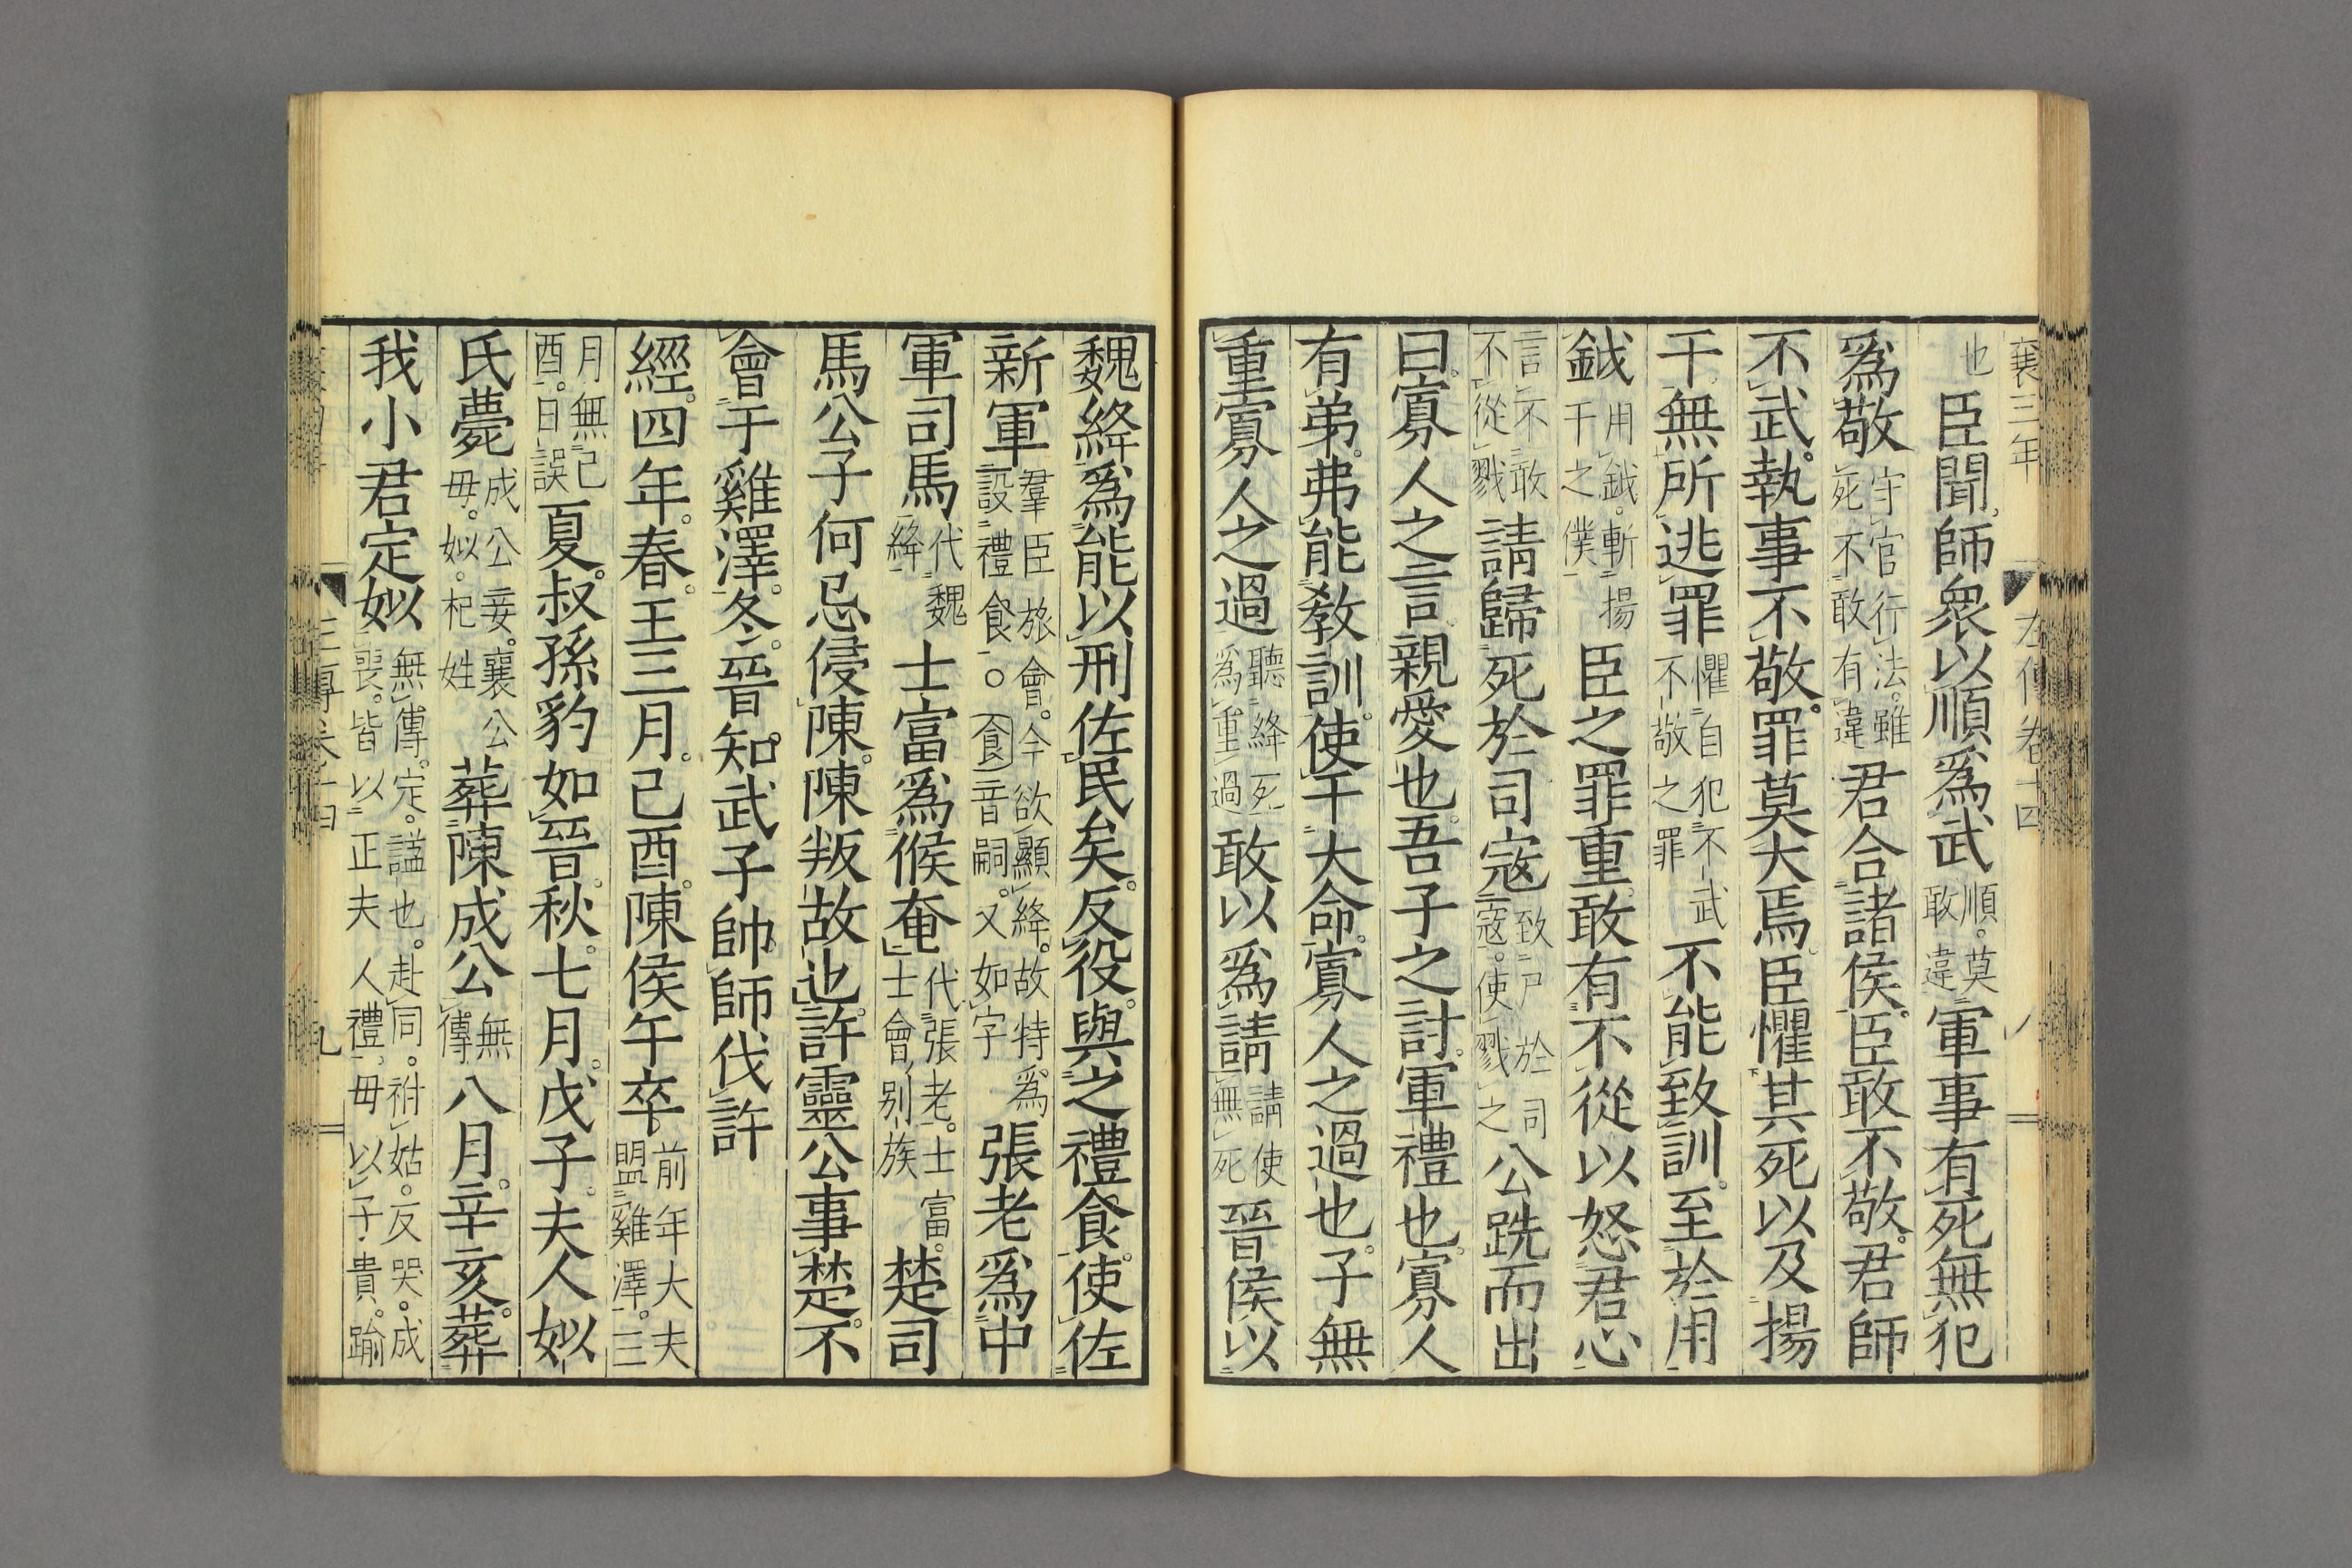 襄三年 左傳卷十四
也臣聞師衆以順爲武順莫敢違軍事有死無犯
爲敬守官行法雖死不敢有違君合諸侯臣敢不敬君師
不武執事不敬罪莫大焉臣懼其死以及揚
干無所逃罪懼自犯不武不敬之罪不能致訓至於用
鉞用鉞斬揚干之僕臣之罪重敢有不從以怒君心
言不敢不從戮請歸死於司寇致尸於司寇使戮之公跣而出
曰寡人之言親愛也吾子之討軍禮也寡人
有弟弗能敎訓使干大命寡人之過也子無
重寡人之過聽絳死爲重過敢以爲請請使無死晉侯以
魏絳爲能以刑佐民矣反役與之禮食使佐
新軍羣臣旅會今欲顯絳故特爲設禮食。食音嗣又如字張老爲中
軍司馬代魏絳士富爲候奄代張老士富士會別族楚司
馬公子何忌侵陳陳叛故也許靈公事楚不
會于雞澤冬晉知武子帥師伐許
經四年春王三月己酉陳侯午卒前年大夫盟雞澤三
月無己酉日誤夏叔孫豹如晉秋七月戊子夫人姒
氏薨成公妾襄公母姒杞姓葬陳成公無傳八月辛亥葬
我小君定姒無傳定謚也赴同祔姑反哭成喪皆以正夫人禮母以子貴踰
九